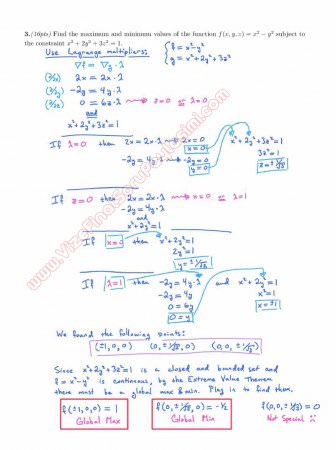 3. (16pts) Find the maximum and minimum values of the function f(x, y, z) = x² − y² subject to
the constraint x² + 2y² + 3z² = 1.
Use Lagrange multipliers:
{ f = x² − y²
g = x² + 2y² + 3z²
∇f = ∇g·λ
(∂/∂x) 2x = 2x·λ
(∂/∂y) −2y = 4y·λ
(∂/∂z) 0 = 6z·λ → z=0 or λ=0
and
x² + 2y² + 3z² = 1
If λ=0 then 2x = 2x·λ → 2x=0
x=0
−2y = 4y·λ → −2y=0
y=0
x² + 2y² + 3z² = 1
3z² = 1
z = ±1/√3
If z=0 then 2x = 2x·λ → x=0 or λ=1
−2y = 4y·λ
and
x² + 2y² = 1
If x=0 then x² + 2y² = 1
2y² = 1
y = ±1/√2
If λ=1 then −2y = 4y·λ and x² + 2y² = 1
−2y = 4y x² = 1
0 = 6y x = ±1
0 = y
We found the following points:
(±1,0,0) (0,±1/√2,0) (0,0,±1/√3)
Since x² + 2y² + 3z² = 1 is a closed and bounded set and
f = x² − y² is continuous, by the Extreme Value Theorem
there must be a global max & min. Plug in to find them.
f(±1,0,0) = 1 f(0,±1/√2,0) = −1/2 f(0,0,±1/√3) = 0
Global Max Global Min Not Special
www.VizeFinalSoruPaylasimi.com